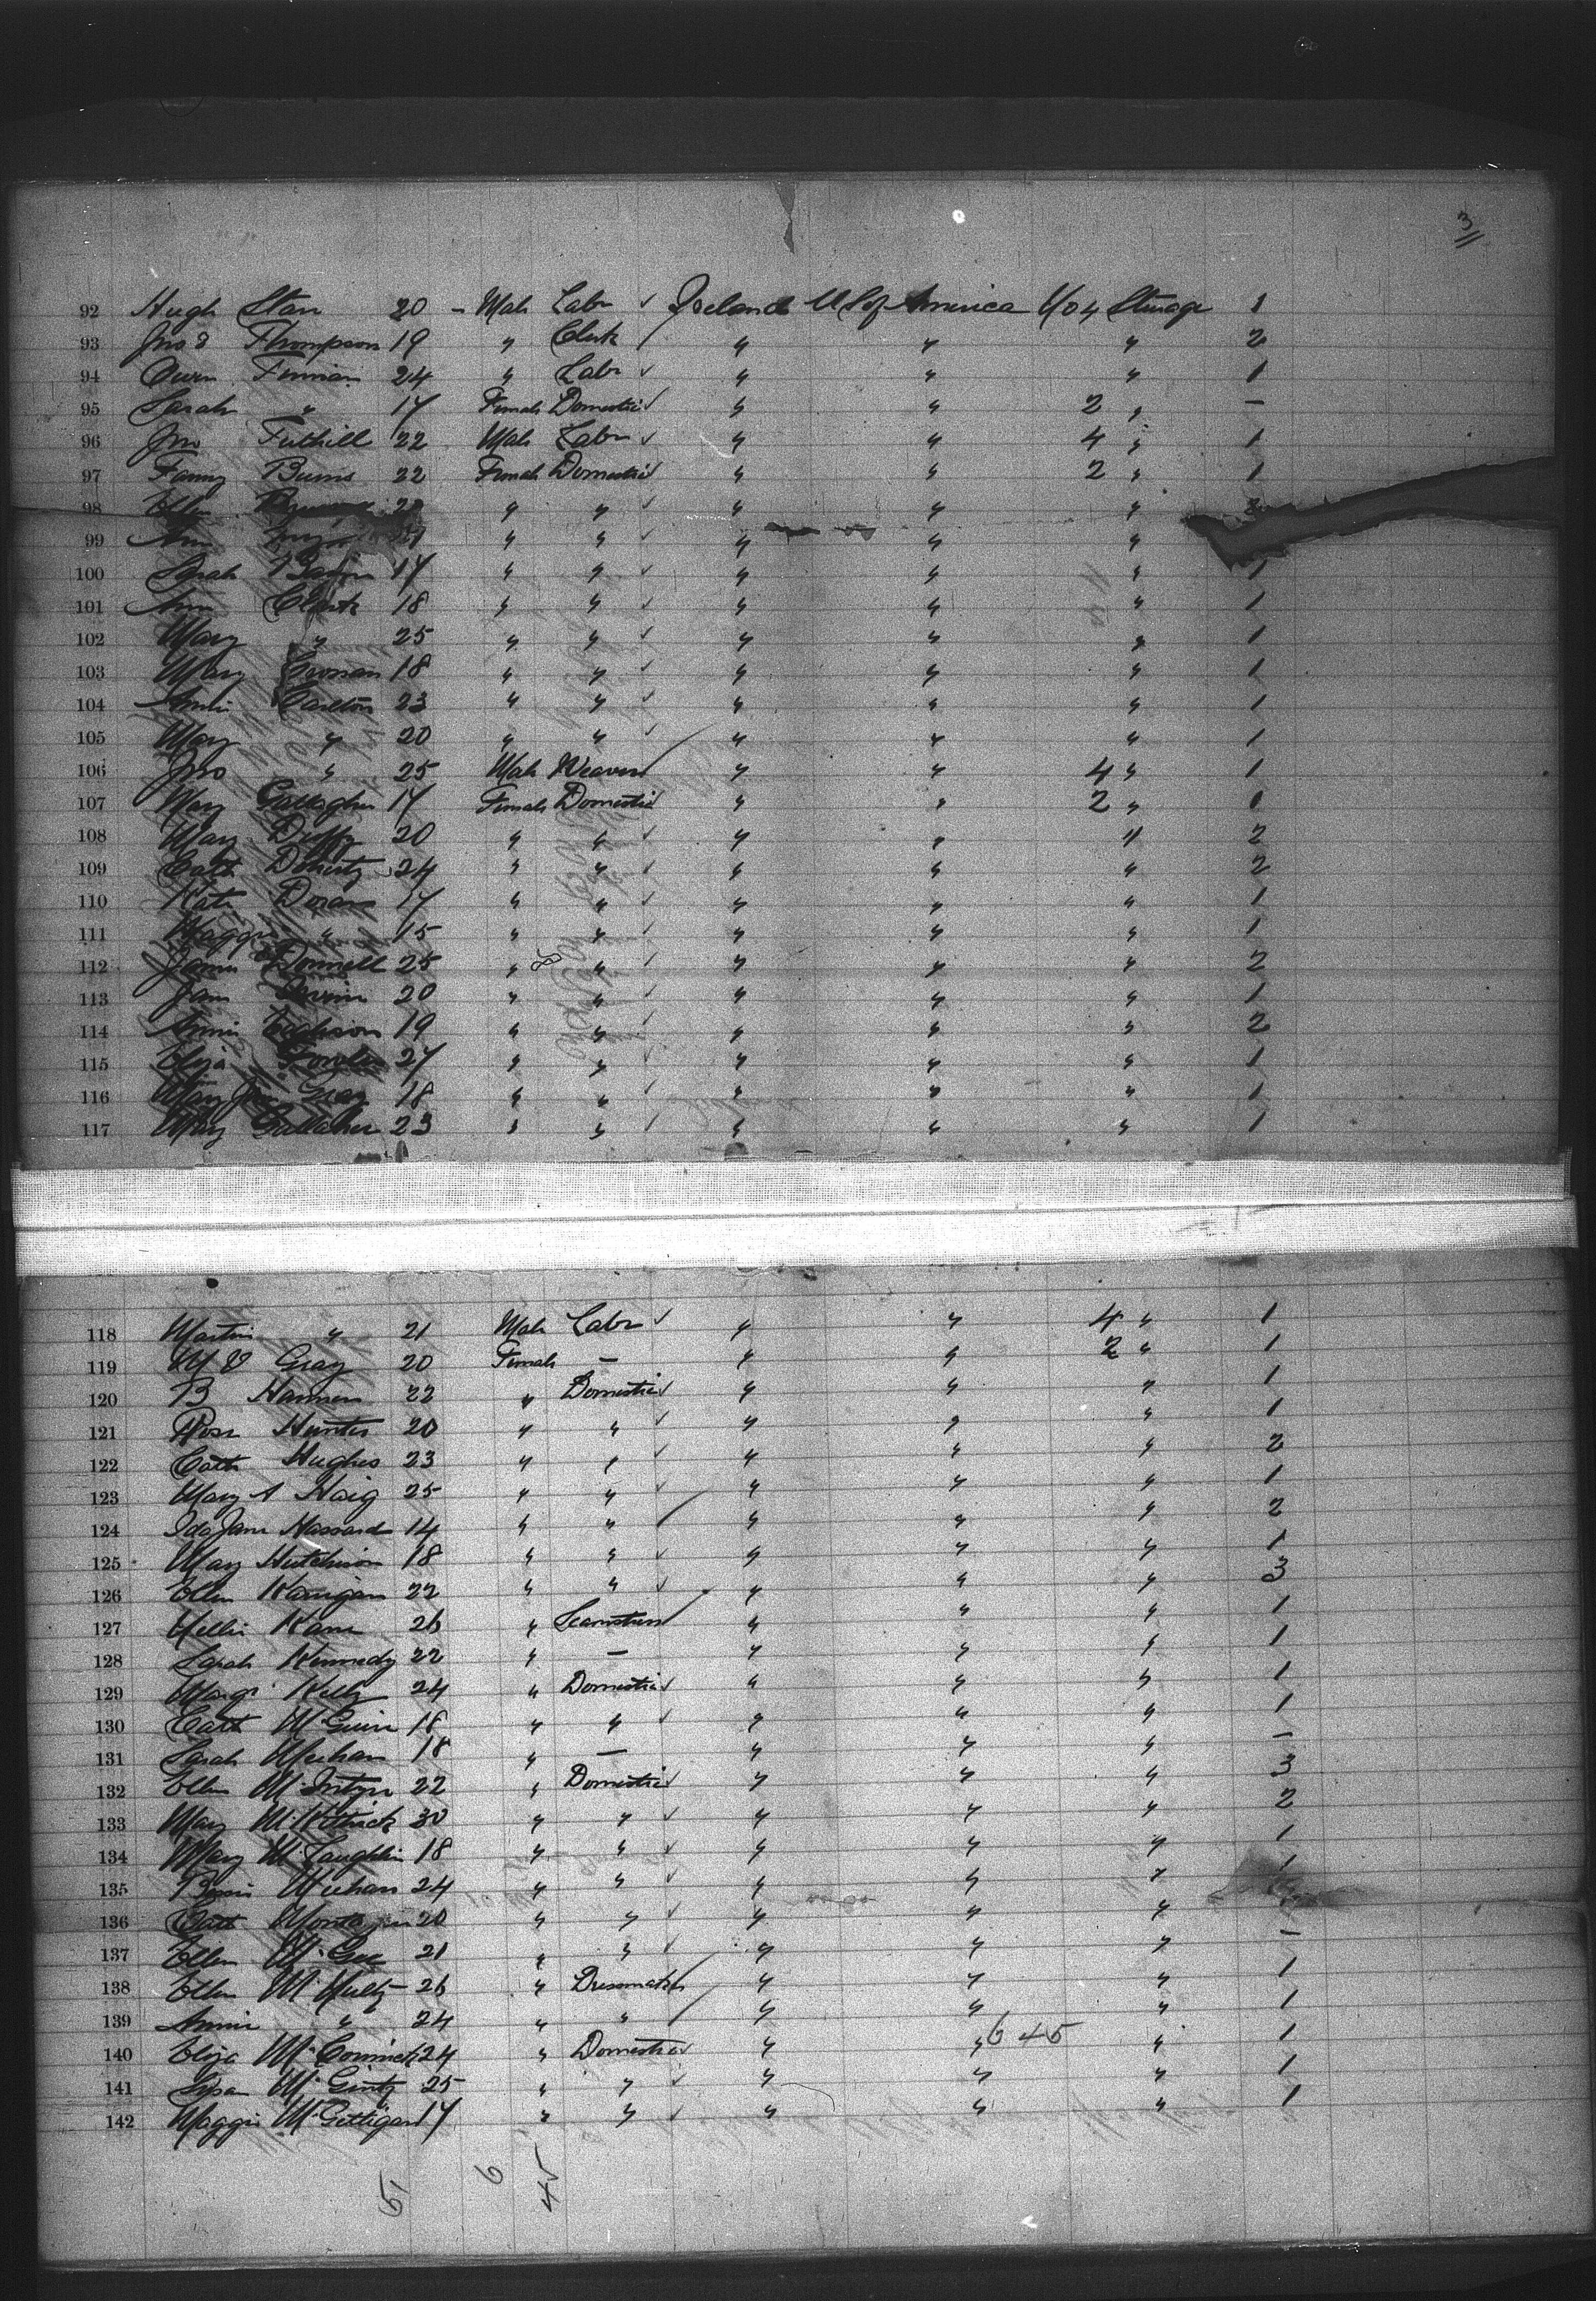 3
92 Hugh Starr 20 - Male Labr ✓ Ireland U S of America No 4 Steerage 1
93 Jno S Thompson 19 " Clerk / " " " 2
94 Owen Finnian 24 " Labr ✓ " " " 1
95 Sarah " 17 Female Domestic ✓ " " 2 " -
96 Jno Tuthill 22 Male Labr ✓ " " 4 " 1
97 Fanny Burns 22 Female Domestic ✓ " " 2 " 1
98 Ellen " " ✓ " " " 2
99 Ann " " ✓ " " "
100 Sarah 17 " " ✓ " " " 1
101 Ann Clark 18 " " ✓ " " " 1
102 Mary " 25 " " ✓ " " " 1
103 Mary 18 " " ✓ " " " 1
104 Carlton 23 " " ✓ " " " 1
105 Mary " 20 " " ✓ " " " 1
106 Jno " 25 Male Weaver / " " 4 " 1
107 Mary Gallagher 17 Female Domestic " " 2 " 1
108 Mary Duffy 20 " " ✓ " " " 2
109 Cath Doherty 24 " " ✓ " " " 2
110 Kate Doran 17 " " ✓ " " " 1
111 Maggie " 15 " " ✓ " " " 1
112 James Donnell 25 " " ✓ " " " 2
113 Jane 20 " " ✓ " " " 1
114 Annie 19 " " ✓ " " " 2
115 Eliza 27 " " ✓ " " " 1
116 Mary Jane Gray 18 " " ✓ " " " 1
117 Mary Gallaher 23 " " ✓ " " " 1
118 Martin " 21 Male Labr ✓ " " 4 " 1
119 Gray 20 Female - " " 2 " 1
120 B Hannen 22 " Domestic ✓ " " " 1
121 Rose Hunter 20 " " ✓ " " " 1
122 Cath Hughes 23 " " ✓ " " " 2
123 Mary A Haig 25 " " ✓ " " " 1
124 Ida Jane Hassard 14 " " / " " " 2
125 Mary Hutchison 18 " " ✓ " " " 1
126 Ellen Kanigan 22 " " ✓ " " " 3
127 Nellie Kane 26 " Seamstress / " " " 1
128 Sarah Kennedy 22 " - " " " 1
129 Margt Kelly 24 " Domestic ✓ " " " 1
130 Cath McGuire 18 " " ✓ " " " 1
131 Sarah Meehan 18 " - " " " -
132 Ellen McIntyre 22 " Domestic ✓ " " " 3
133 Mary McKittrick 30 " " ✓ " " " 2
134 Mary McLaughlin 18 " " ✓ " " " 1
135 Meehan 24 " " ✓ " " " 1
136 Cath 20 " " ✓ " " "
137 Ellen McGee 21 " " ✓ " " " -
138 Ellen McNulty 26 " Dressmaker / " " " 1
139 Annie " 24 " " / " " " 1
140 Eliza McCormick 24 " Domestic ✓ " " 6 45 " 1
141 Susan McGinty 25 " " ✓ " " " 1
142 Maggie McGettigan 17 " " ✓ " " " 1
5 6 45